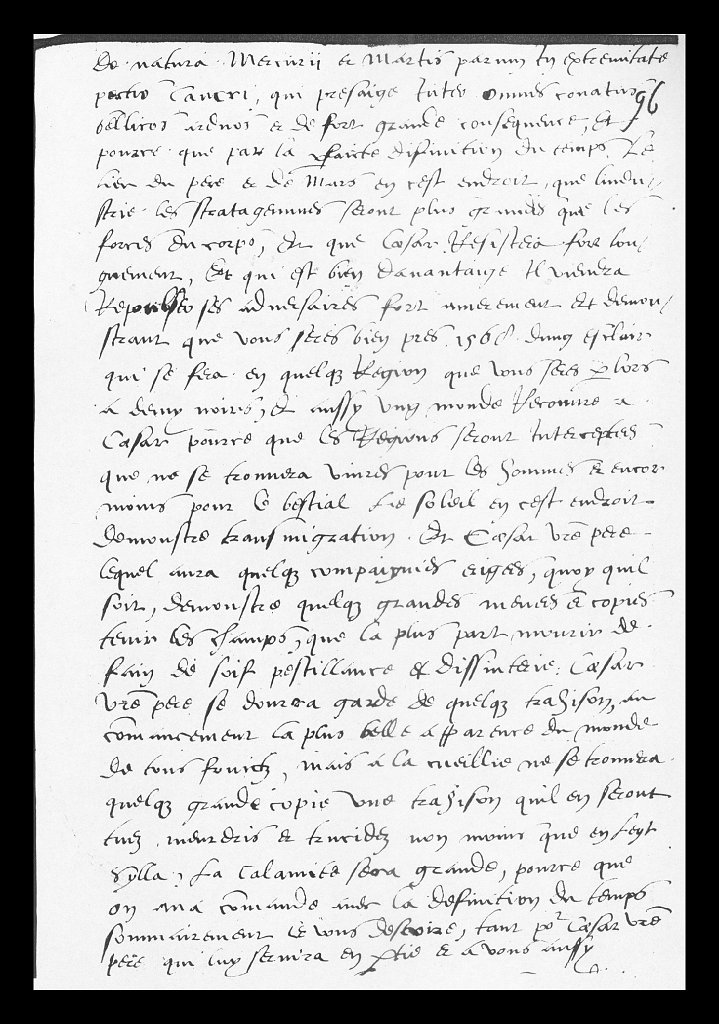 de natura Mercurii et Martis parum in extremitate
Cancri, qui presaige tutes omnes conatus
96
bellicos arduos et de fort grande consequence, Et
pource que par la faicte difinition du temps Le
lieu du pere et de Mars en cest endroit, que lindu-
strie les stratagemmes seront plus grandes que les
forces du corps, Et que Cæsar Resistera fort lon-
guement, Et qui est bien davantaige Il viendra
Repoulser ses adversaires fort amerement Et demon-
strant que vous serés bien pres 1568 dung esclair
qui se fera en quelq3 Region que vous seres lors
a demy noirs, et aussy ung monde Recouvre a
Cæsar pource que les Regions seront Interceptees
que ne se trouvera vivres pour les hommes et encor
moins pour le bestial Le soleil en cest endroit
demonstre transmigration. Et Cæsar vrē pere
lequel aura quelq3 compaignies erigees, quoy quil
soit, demonstre quelq3 grandes menees et copies
tenir les champs, que la plus part mourir de
fain de soif pestillance et dissinterie, Cæsar
vrē pere se donra garde de quelq3 trahison, au
cōmancement la plus belle apparence du monde
de tous fruictz, mais a la cueillie ne se trouvera
quelq3 grande copie une trahison quil en seront
tuez meurdris et trucidez non moins que en feyt
Sylla, La Calamite sera grande, pource que
on ma cōmande avec la definition du temps
sommairement le vous descrire, tant po^r Cæsar vrē
pere qui luy servira en ptie et a vous aussy